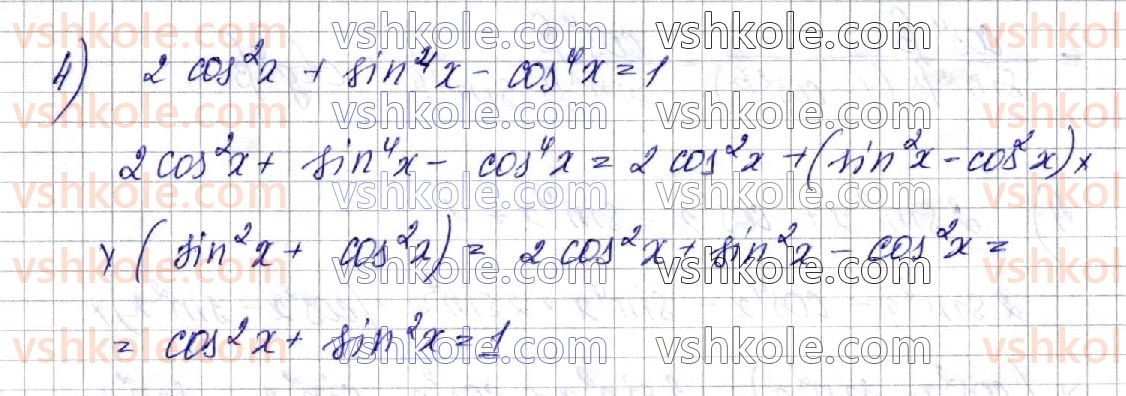 4) 2 cos²x + sin⁴x - cos⁴x = 1
2 cos²x + sin⁴x - cos⁴x = 2 cos²x + (sin²x - cos²x) ×
× (sin²x + cos²x) = 2 cos²x + sin²x - cos²x =
= cos²x + sin²x = 1
vshkole.com vshkole.com vshkole.com vshkole.com
vshkole.com vshkole.com vshkole.com vshkole.com
vshkole.com vshkole.com vshkole.com vshkole.com
vshkole.com vshkole.com vshkole.com vshkole.com
vshkole.com vshkole.com vshkole.com vshkole.com